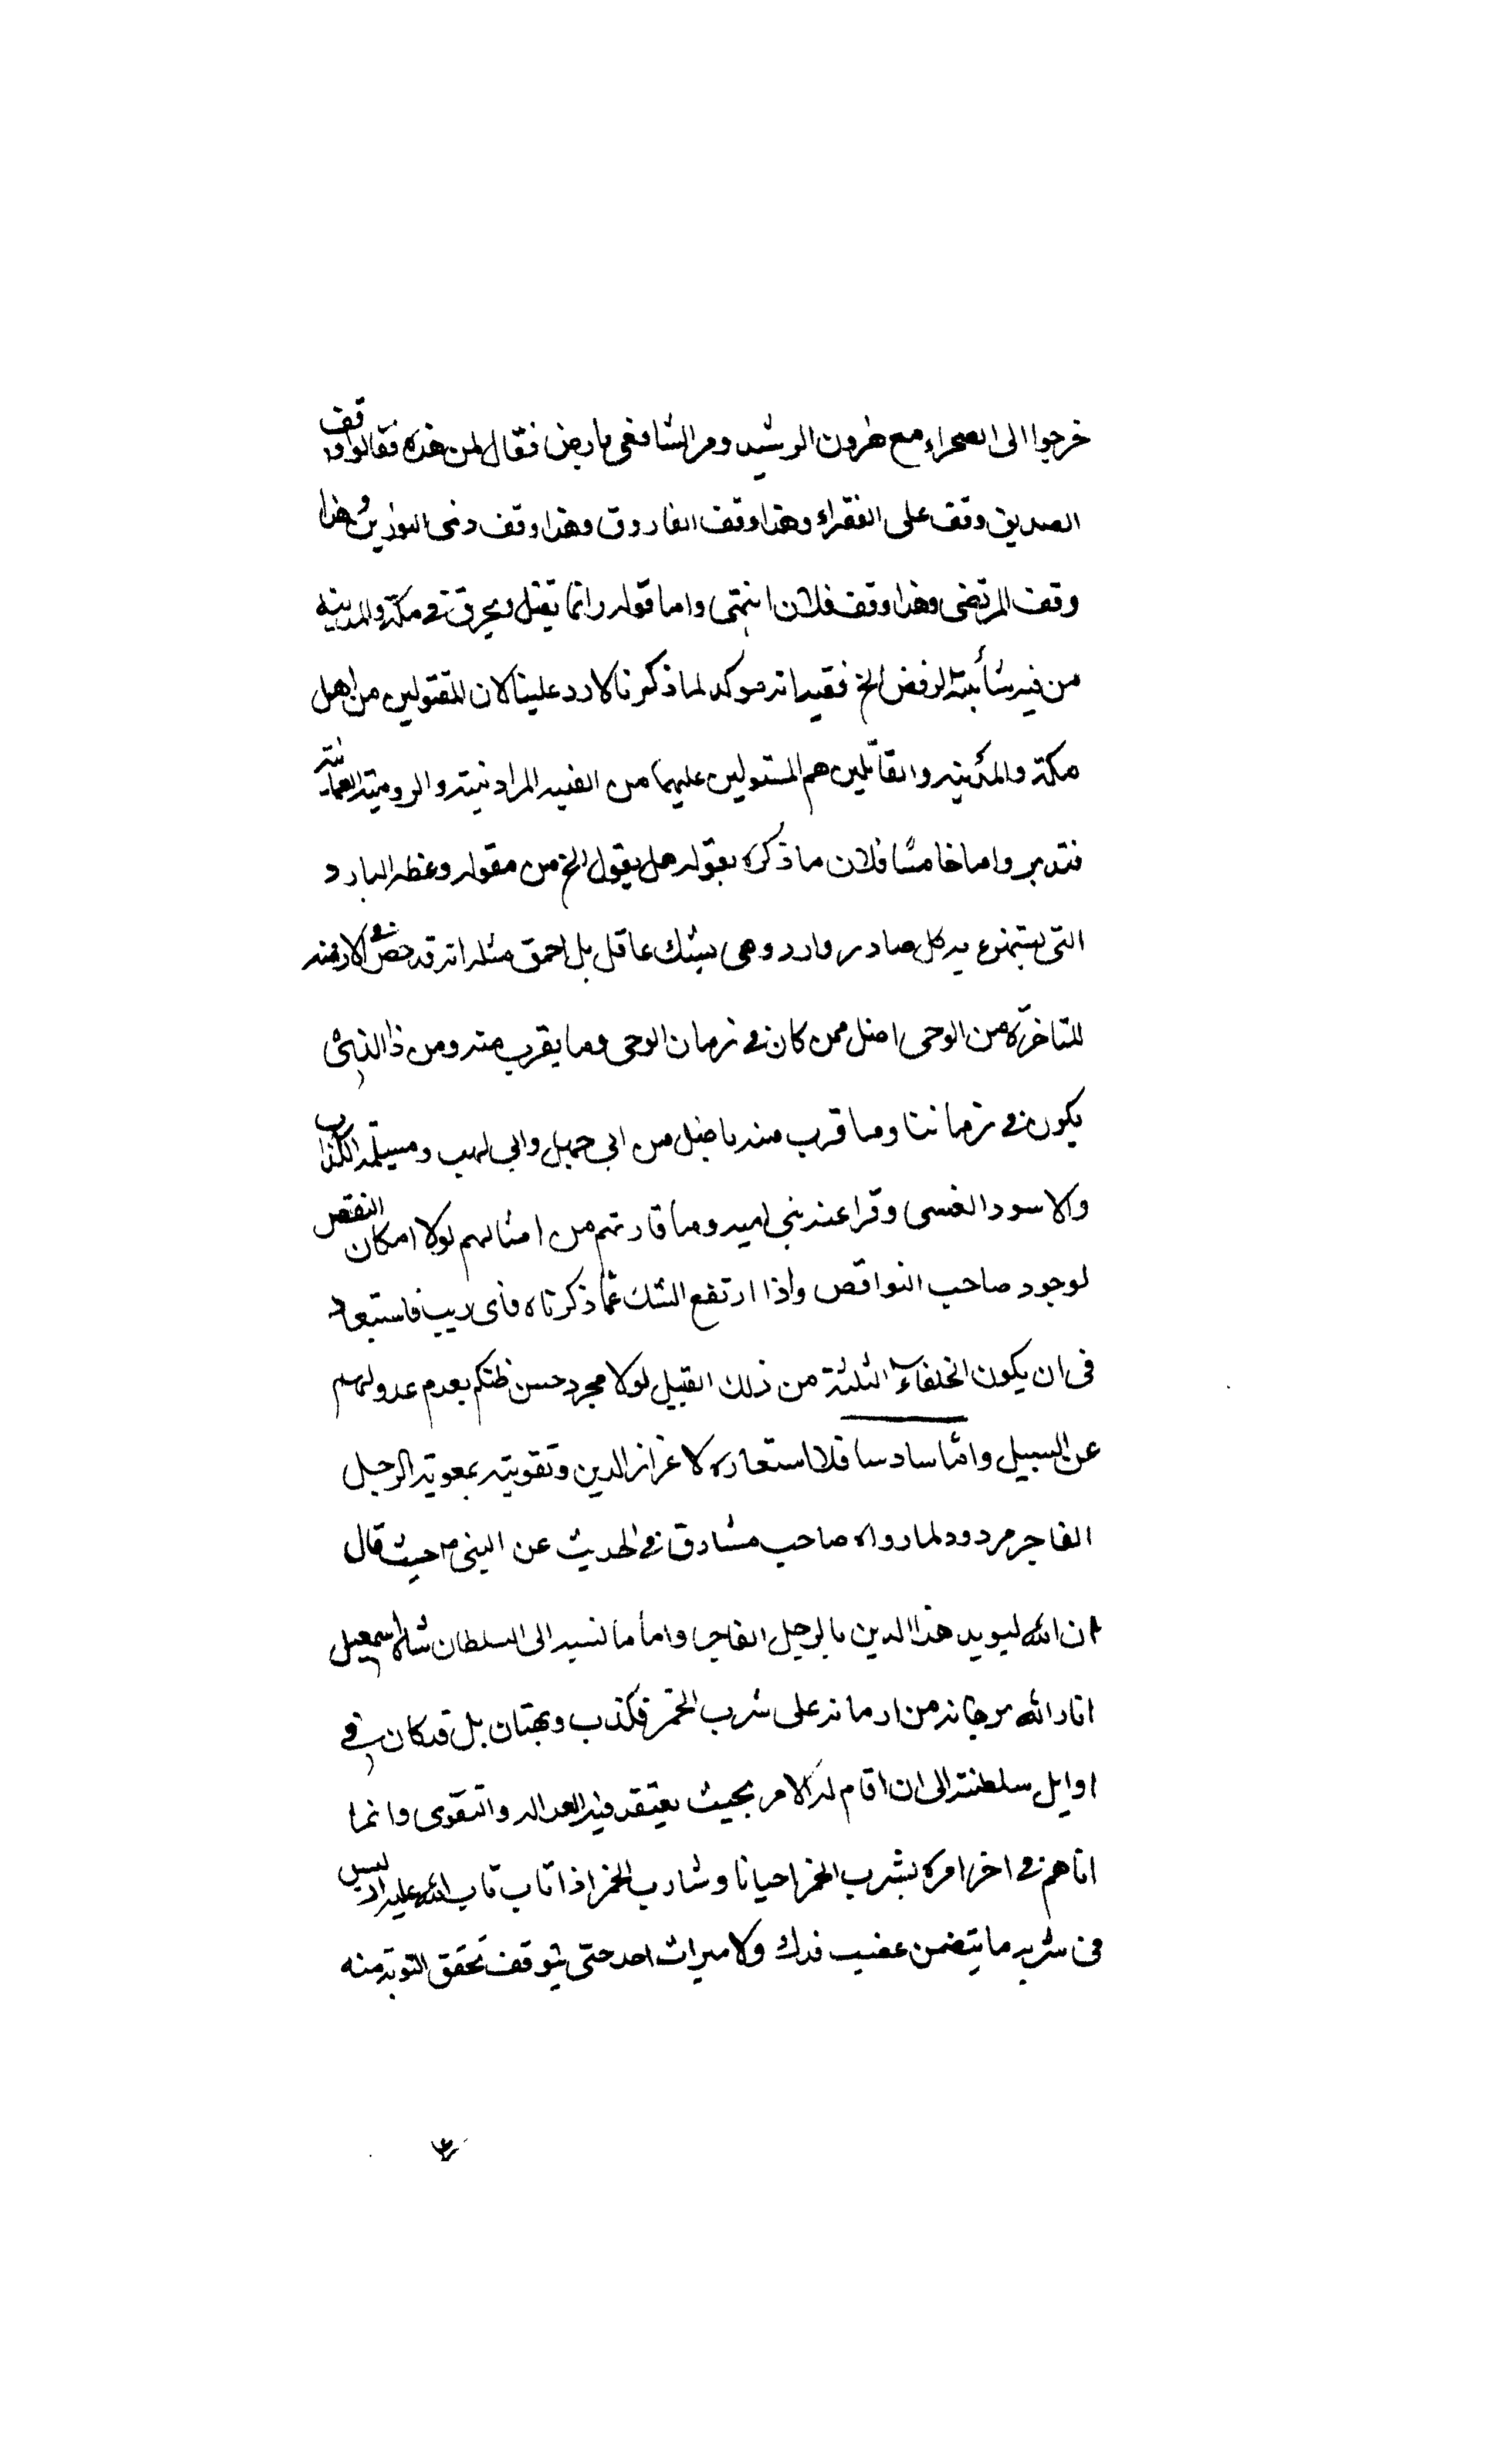 خرجوا الى الصحراء مع هرون الرشيد ومر الشافعى بارض فقال لمن هذه فقالوا وقف
الصديق وقف على الفقراء وهذا وقف الفاروق وهذا وقف ذى النورين وهذا
وقف المرتضى وهذا وقف فلان انتهى واما قوله وانما يقتل ويحرق فى مكة والمدينة
من فيه شائبة الرفض الخ ففيه انه موكد لما ذكرنا لا رد علينا لان المقتولين من اهل
مكة والمدينة والقاتلين هم المستولين عليهما من الفئة المروانية والرومية العثمانية
فتدبر واما خامسا فلان ما ذكره بقوله هل يقول الخ من مقوله وعظه البارد
التى يستهزء به كل صادر ووارد وهى يشك عاقل بل احمق مثله انه قد فى الازمنة
المتاخرة من الوحى اضل ممن كان فى زمان الوحى وما يقرب منه ومن ذا الذى
يكون فى زماننا وما قرب منه باضل من ابى جهل وابى لهب ومسيلمة الكذاب
والاسود العنسى وقرا عند بنى اميه وما قاربهم من امثالهم لولا امكان النقض
لوجود صاحب النواقض واذا ارتفع الشك عما ذكرناه فاى ريب فاستبعاد
فى ان يكون الخلفاء الثلثة من ذلك القبيل لولا مجرد حسن ظنكم بعدم عدولهم
عن السبيل واما سادسا فلا استعاره لاعزاز الدين وتقويته بمعونة الرجل
الفاجر مردود لما رواه صاحب مشارق فى الحديث عن النبى ص حيث قال
ان الله ليويد هذا الدين بالرجل الفاجر واما ما نسبه الى السلطان شاه اسمعيل
انار الله برهانه من ادمانه على شرب الخمر فكذب وبهتان بل قد كان فى
اوايل سلطنته الى ان اقام له الامر بحيث يعتقد فيه العدالة والتقوى وانما
اتاهم فى اخر امره بشرب الخمر احيانا وشارب الخمر اذا تاب تاب الله عليه اذ ليس
فى شربه ما يتضمن غصب فدك ولا ميراث احد حتى يتوقف تحقق التوبة منه